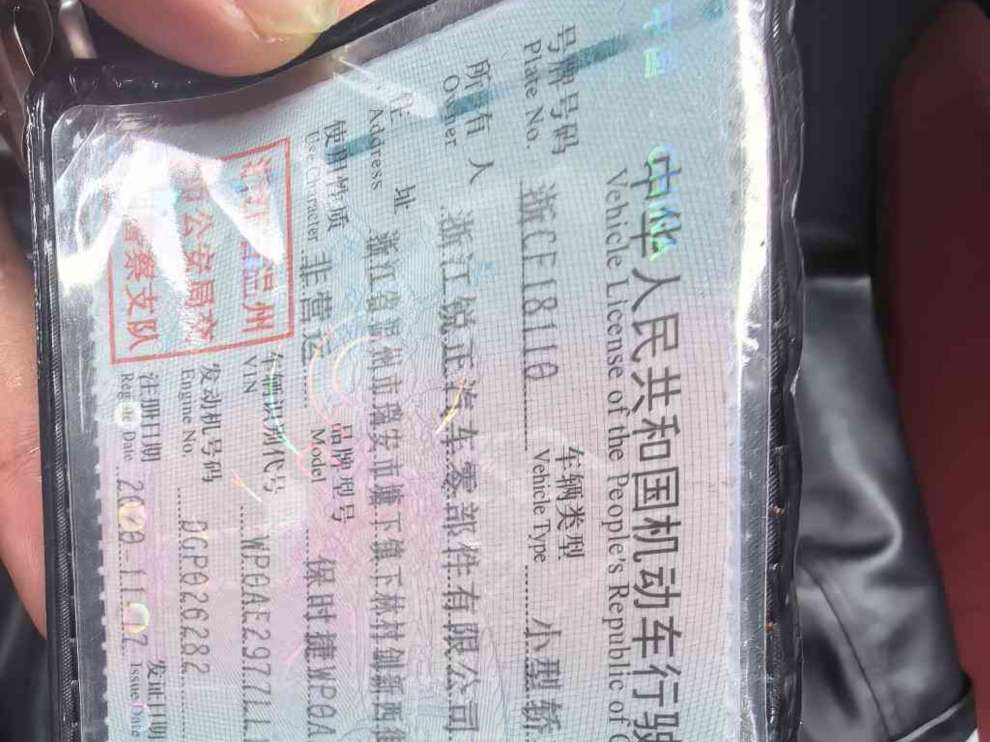 中华人民共和国机动车行驶
Vehicle License of the People's Republic of C
号牌号码 浙CF18110 车辆类型 小型轿
Plate No. Vehicle Type
所有人 浙江锐正汽车零部件有限公司
Owner
住址 浙江省温州市瑞安市塘下镇下林村创新西街
Address
使用性质 非营运 品牌型号 保时捷WP0A
Use Character Model
车辆识别代号 WP0AE2977LL
VIN
发动机号码 DGP026282
Engine No.
注册日期 发证日期
Date Issue Date
温州
公安局交
警察支队